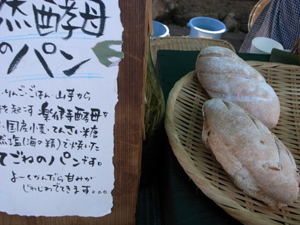 然酵母
のパン
りんご・ごはん・山芋から
き起こす 楽健寺酵母を
国産小麦・てんさい糖
然塩(海の精)で焼いた
てごねのパンです。
よーくかんだら甘みが
じわじわでてきます...